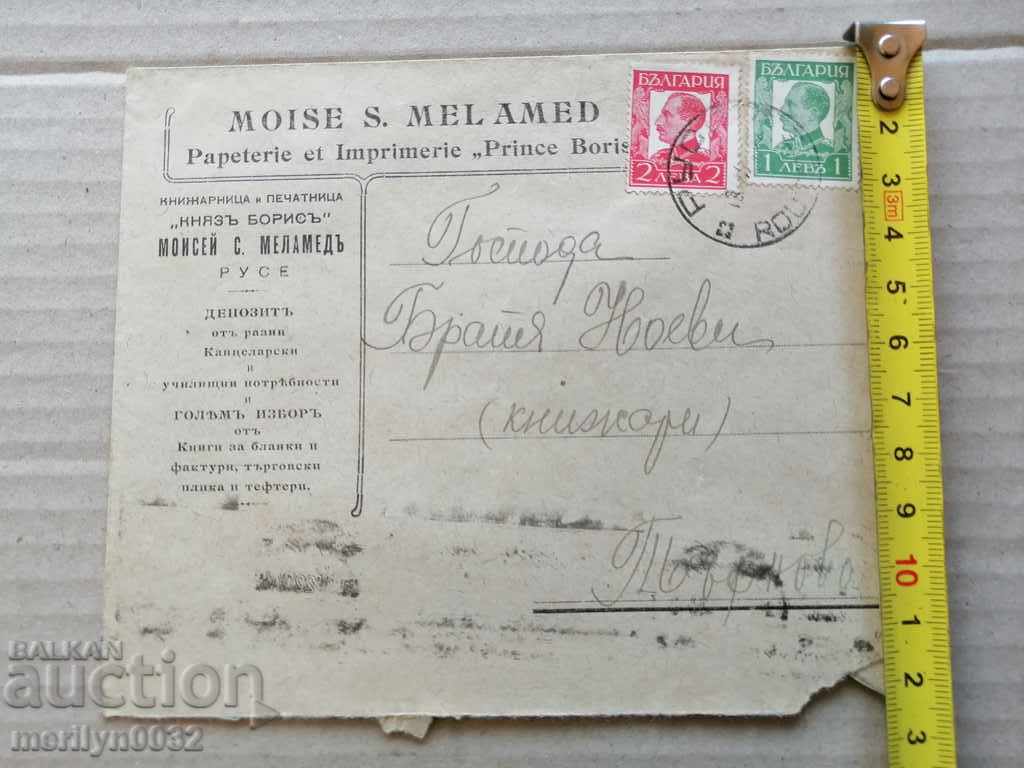 MOISE S. MELAMED
Papeterie et Imprimerie „Prince Boris
КНИЖАРНИЦА и ПЕЧАТНИЦА
„КНЯЗЪ БОРИСЪ"
МОИСЕЙ С. МЕЛАМЕДЪ
РУСЕ
ДЕПОЗИТЪ
отъ разни
Канцеларски
и
училищни потрѣбности
и
ГОЛѢМЪ ИЗБОРЪ
отъ
Книги за бланки и
фактури, търговски
плика и тефтери.
БЪЛГАРИЯ
2 ЛЕВА 2
БЪЛГАРИЯ
1 ЛЕВЪ 1
РУ
ROU
Господа
Братя Ноеви
(книжари)
Търново
2
3 3m
4
5
6
7
8
9
10
1
2
3
BALKAN
auction
merilyn0032